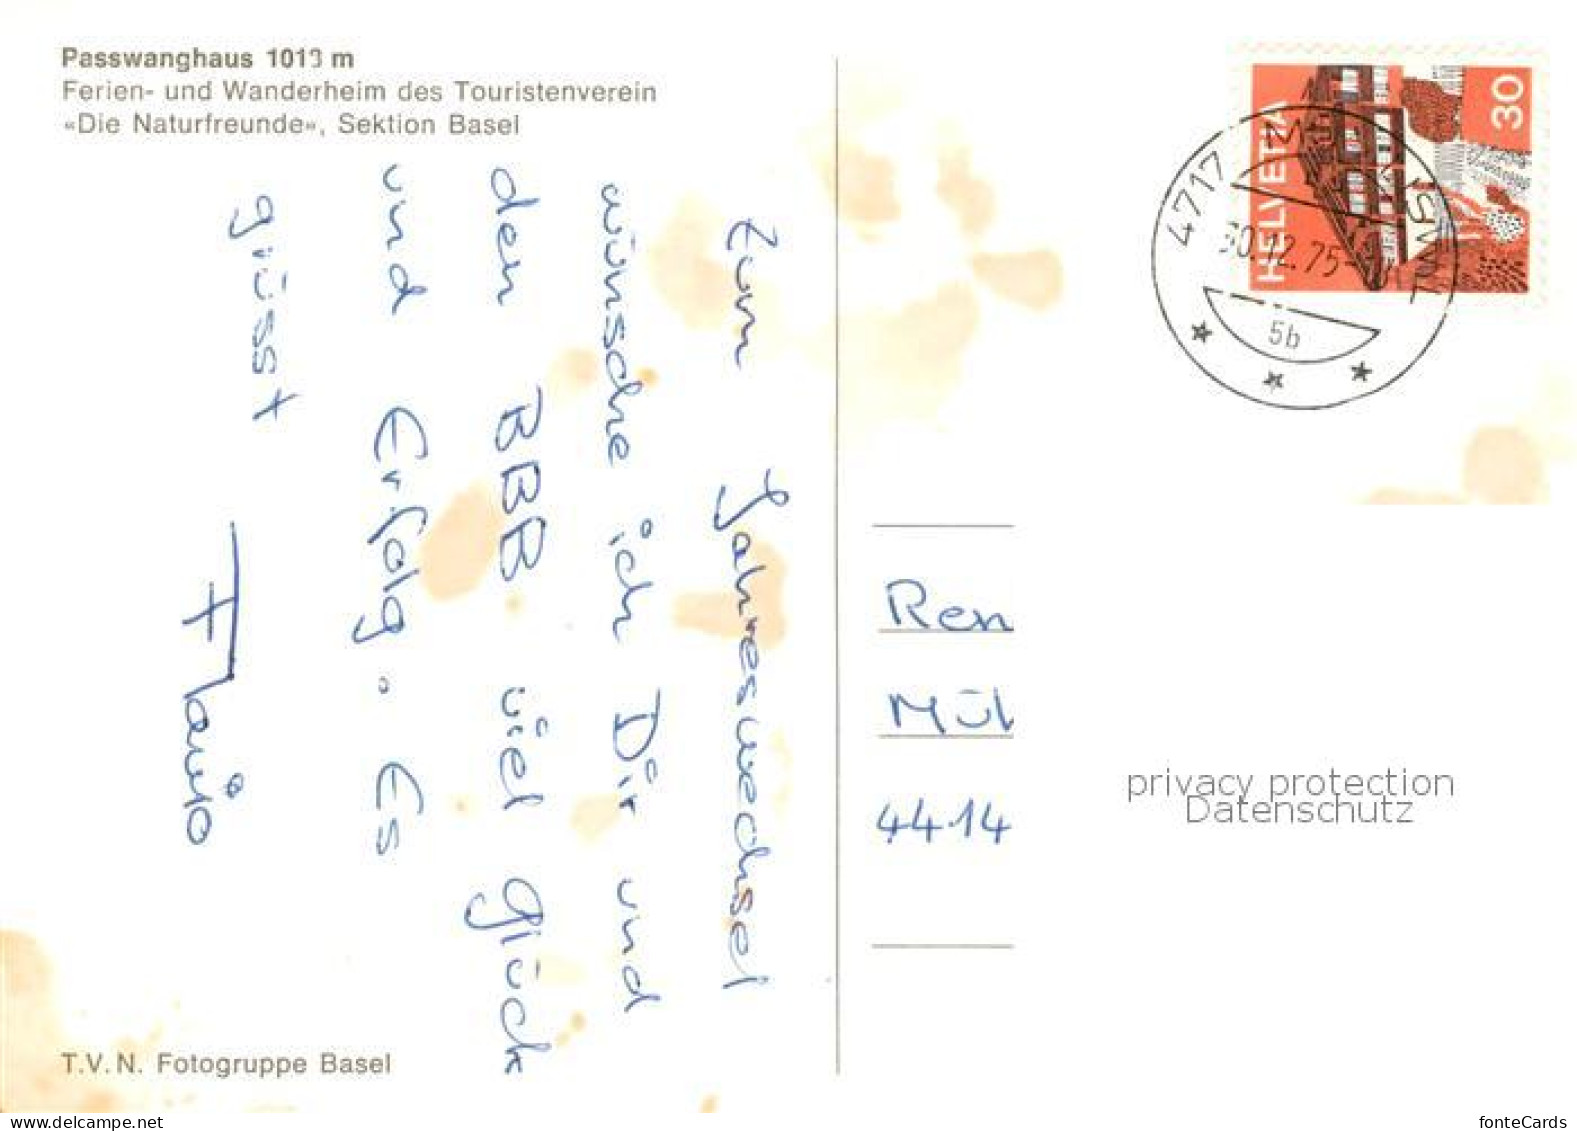 Passwanghaus 1013 m
Ferien- und Wanderheim des Touristenverein
«Die Naturfreunde», Sektion Basel
Zum Jahreswechsel
wünsche ich Dir und
den BBB viel Glück
und Erfolg. Es
grüsst
Flavio
T.V.N. Fotogruppe Basel
HELVETIA
30
4717 MÜMLISWIL
30.12.75
5b
Ren
Mül
4414
privacy protection
Datenschutz
www.delcampe.net
fonteCards